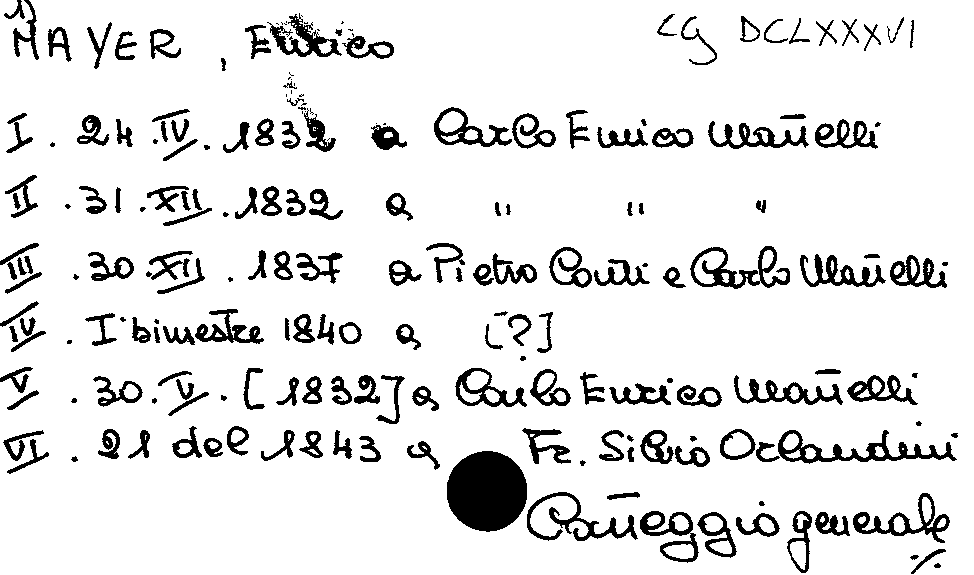 1)
MAYER, Enrico CG DCLXXXVI
I. 24.IV.1832 a Carlo Enrico Mañelli
II.31.XII.1832 a " " "
III.30.XII.1837 a Pietro Conti e Carlo Mañelli
IV. I° bimestre 1840 a [?]
V.30.V.[1832] a Carlo Enrico Mañelli
VI.21 del 1843 a Fr. Silvio Orlandini
Carteggio generale
./.